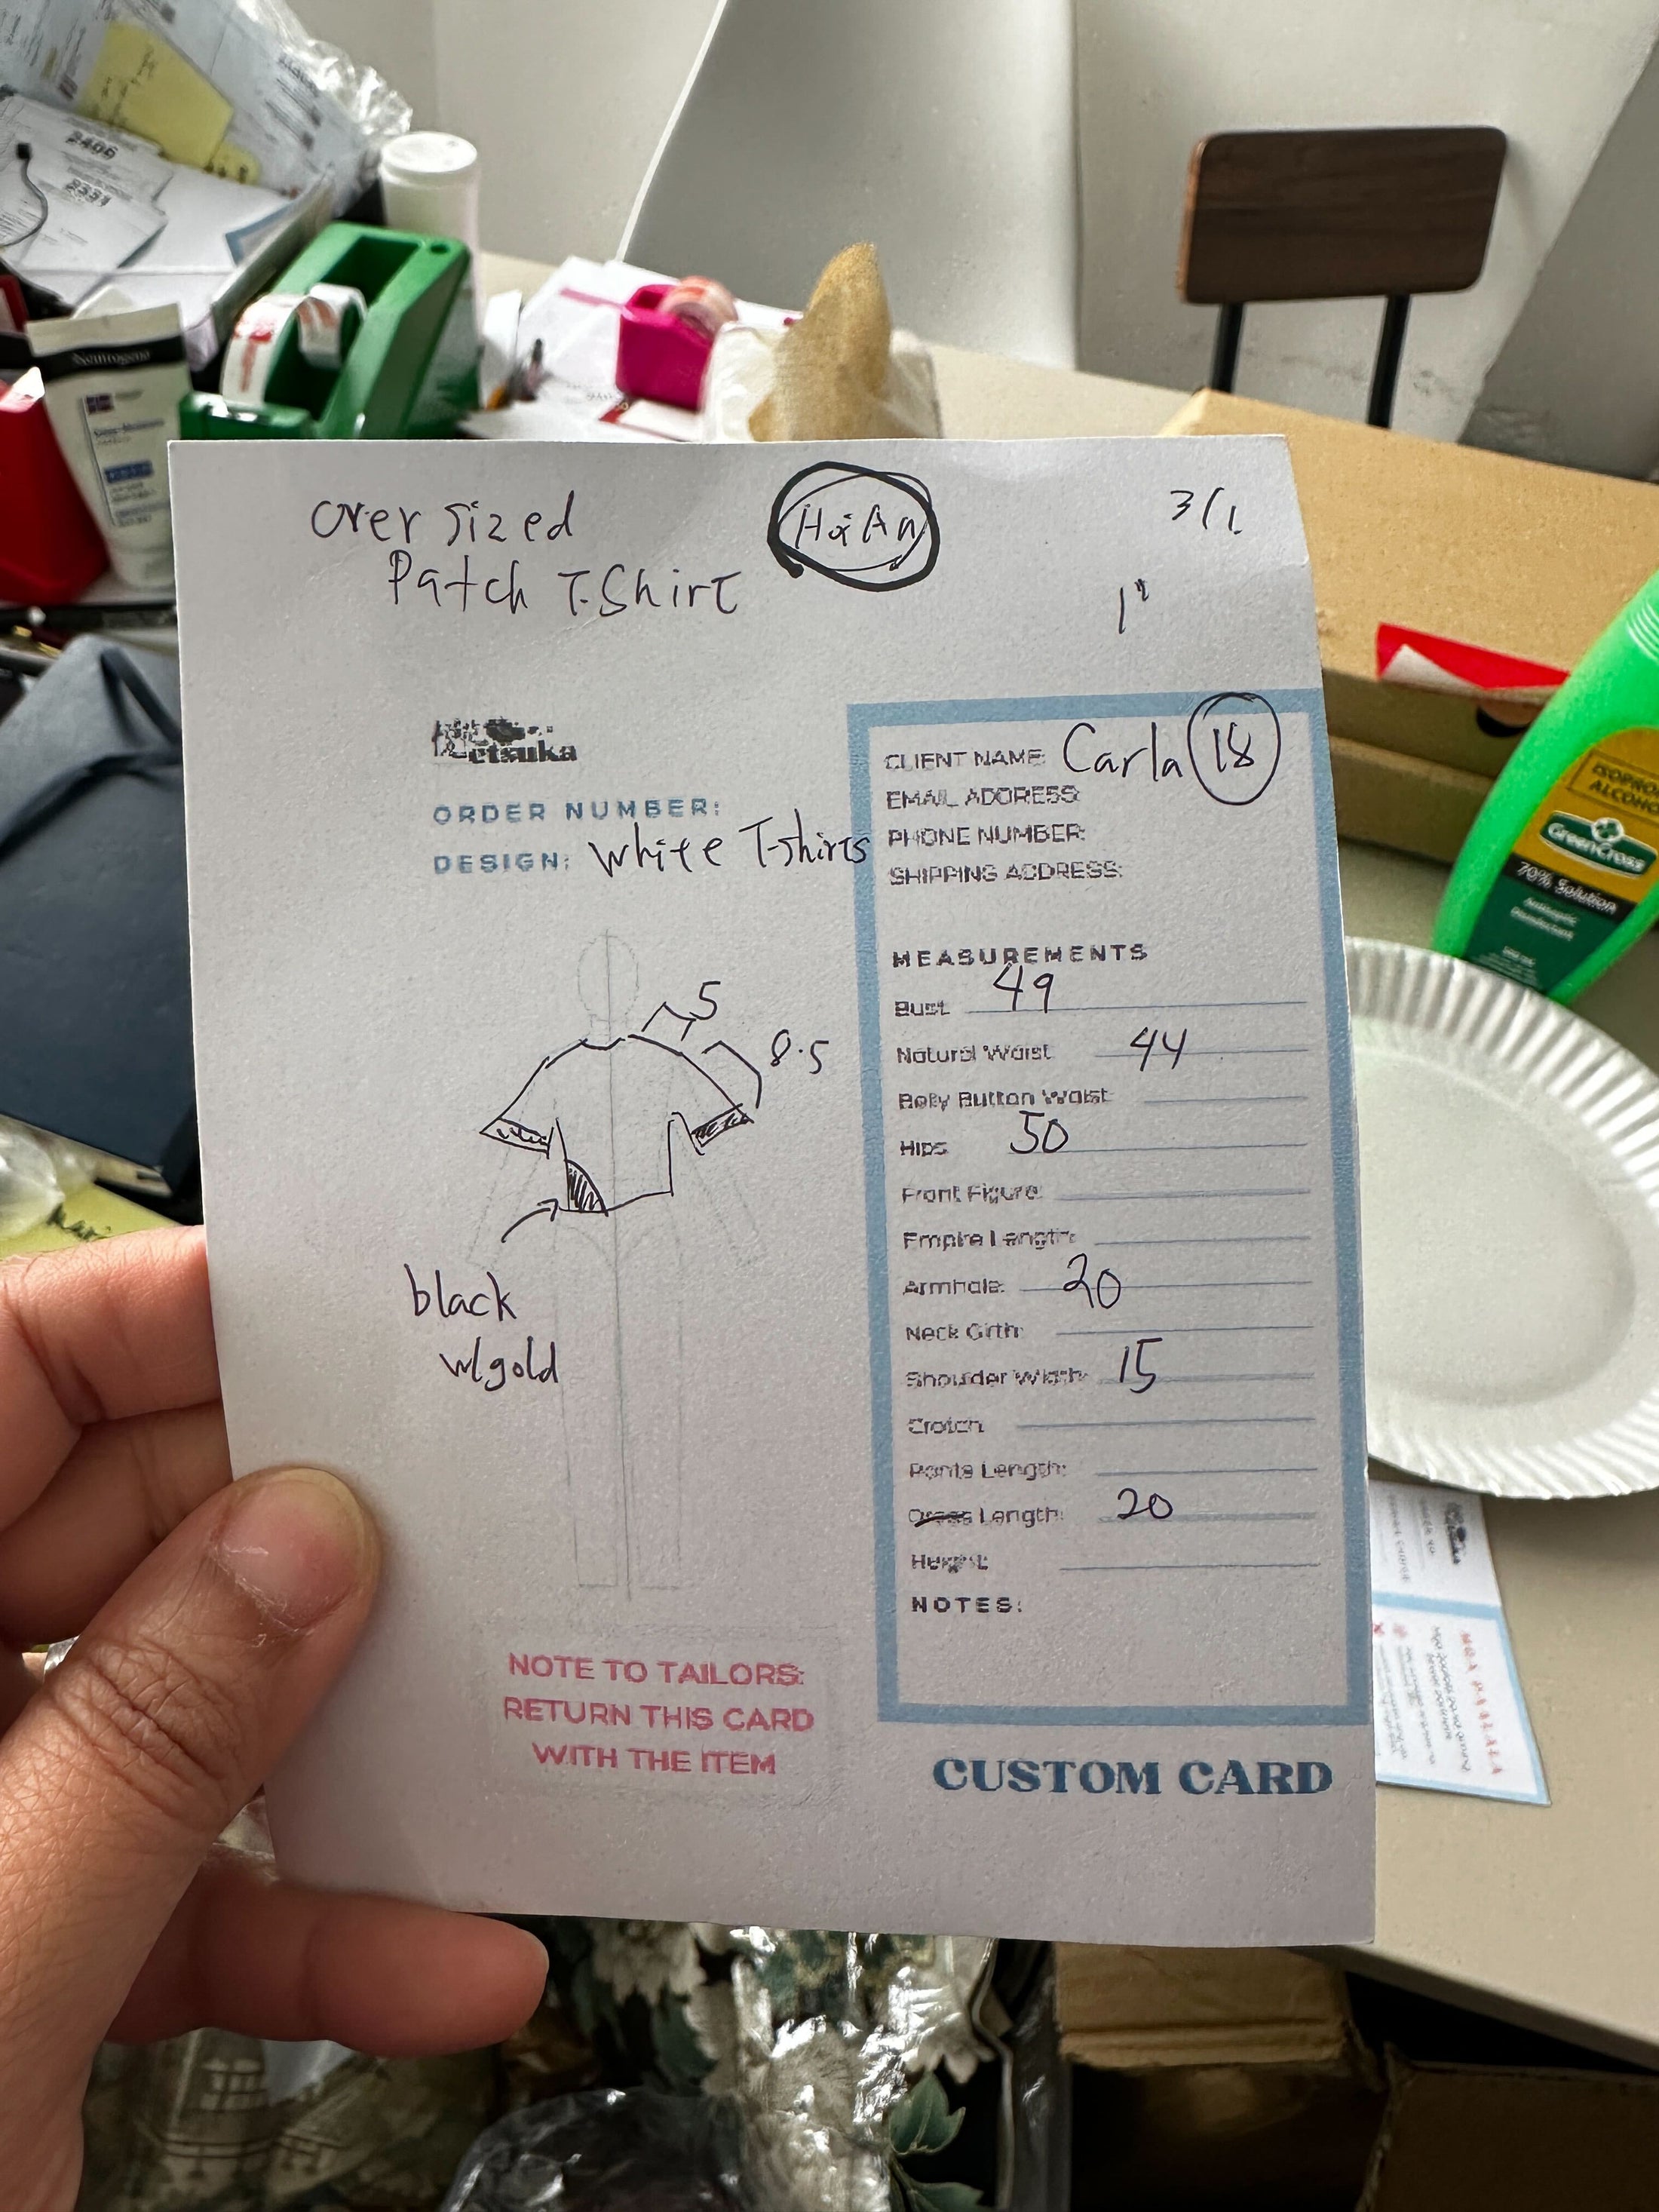 2406
2331
Neutrogena
over sized
Patch T-Shirt
HoiAn
3/1
1"
etsuka
ORDER NUMBER:
DESIGN: white T-shirts
5
8.5
black
w/gold
NOTE TO TAILORS:
RETURN THIS CARD
WITH THE ITEM
CLIENT NAME: Carla 18
EMAIL ADDRESS:
PHONE NUMBER:
SHIPPING ADDRESS:
MEASUREMENTS
Bust 49
Natural Waist 44
Belly Button Waist:
Hips 50
Front Figure:
Empire Length:
Armhole: 20
Neck Girth:
Shoulder Width: 15
Crotch:
Pants Length:
Dress Length: 20
Height:
NOTES:
CUSTOM CARD
ALCOHOL
GreenCross
70% Solution
Antiseptic
Disinfectant